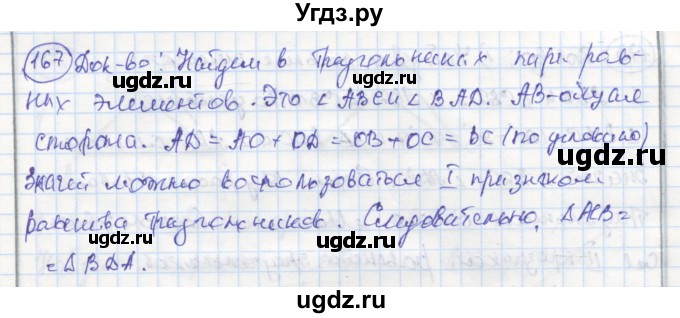 Угдз.ру
167 Док-во: Найдем в треугольниках пары рав-
gdz.ru
ных элементов. Это ∠ABC и ∠BAD. AB - общая
сторона. AD = AO + OD = OB + OC = BC (по условию)
Значит можно воспользоваться I признаком
равенства треугольников. Следовательно, ΔACB =
= ΔBDA.
uGdz.ru
uGdz.ru
uGdz.ru
uGdz.ru
uGdz.ru
uGdz.ru